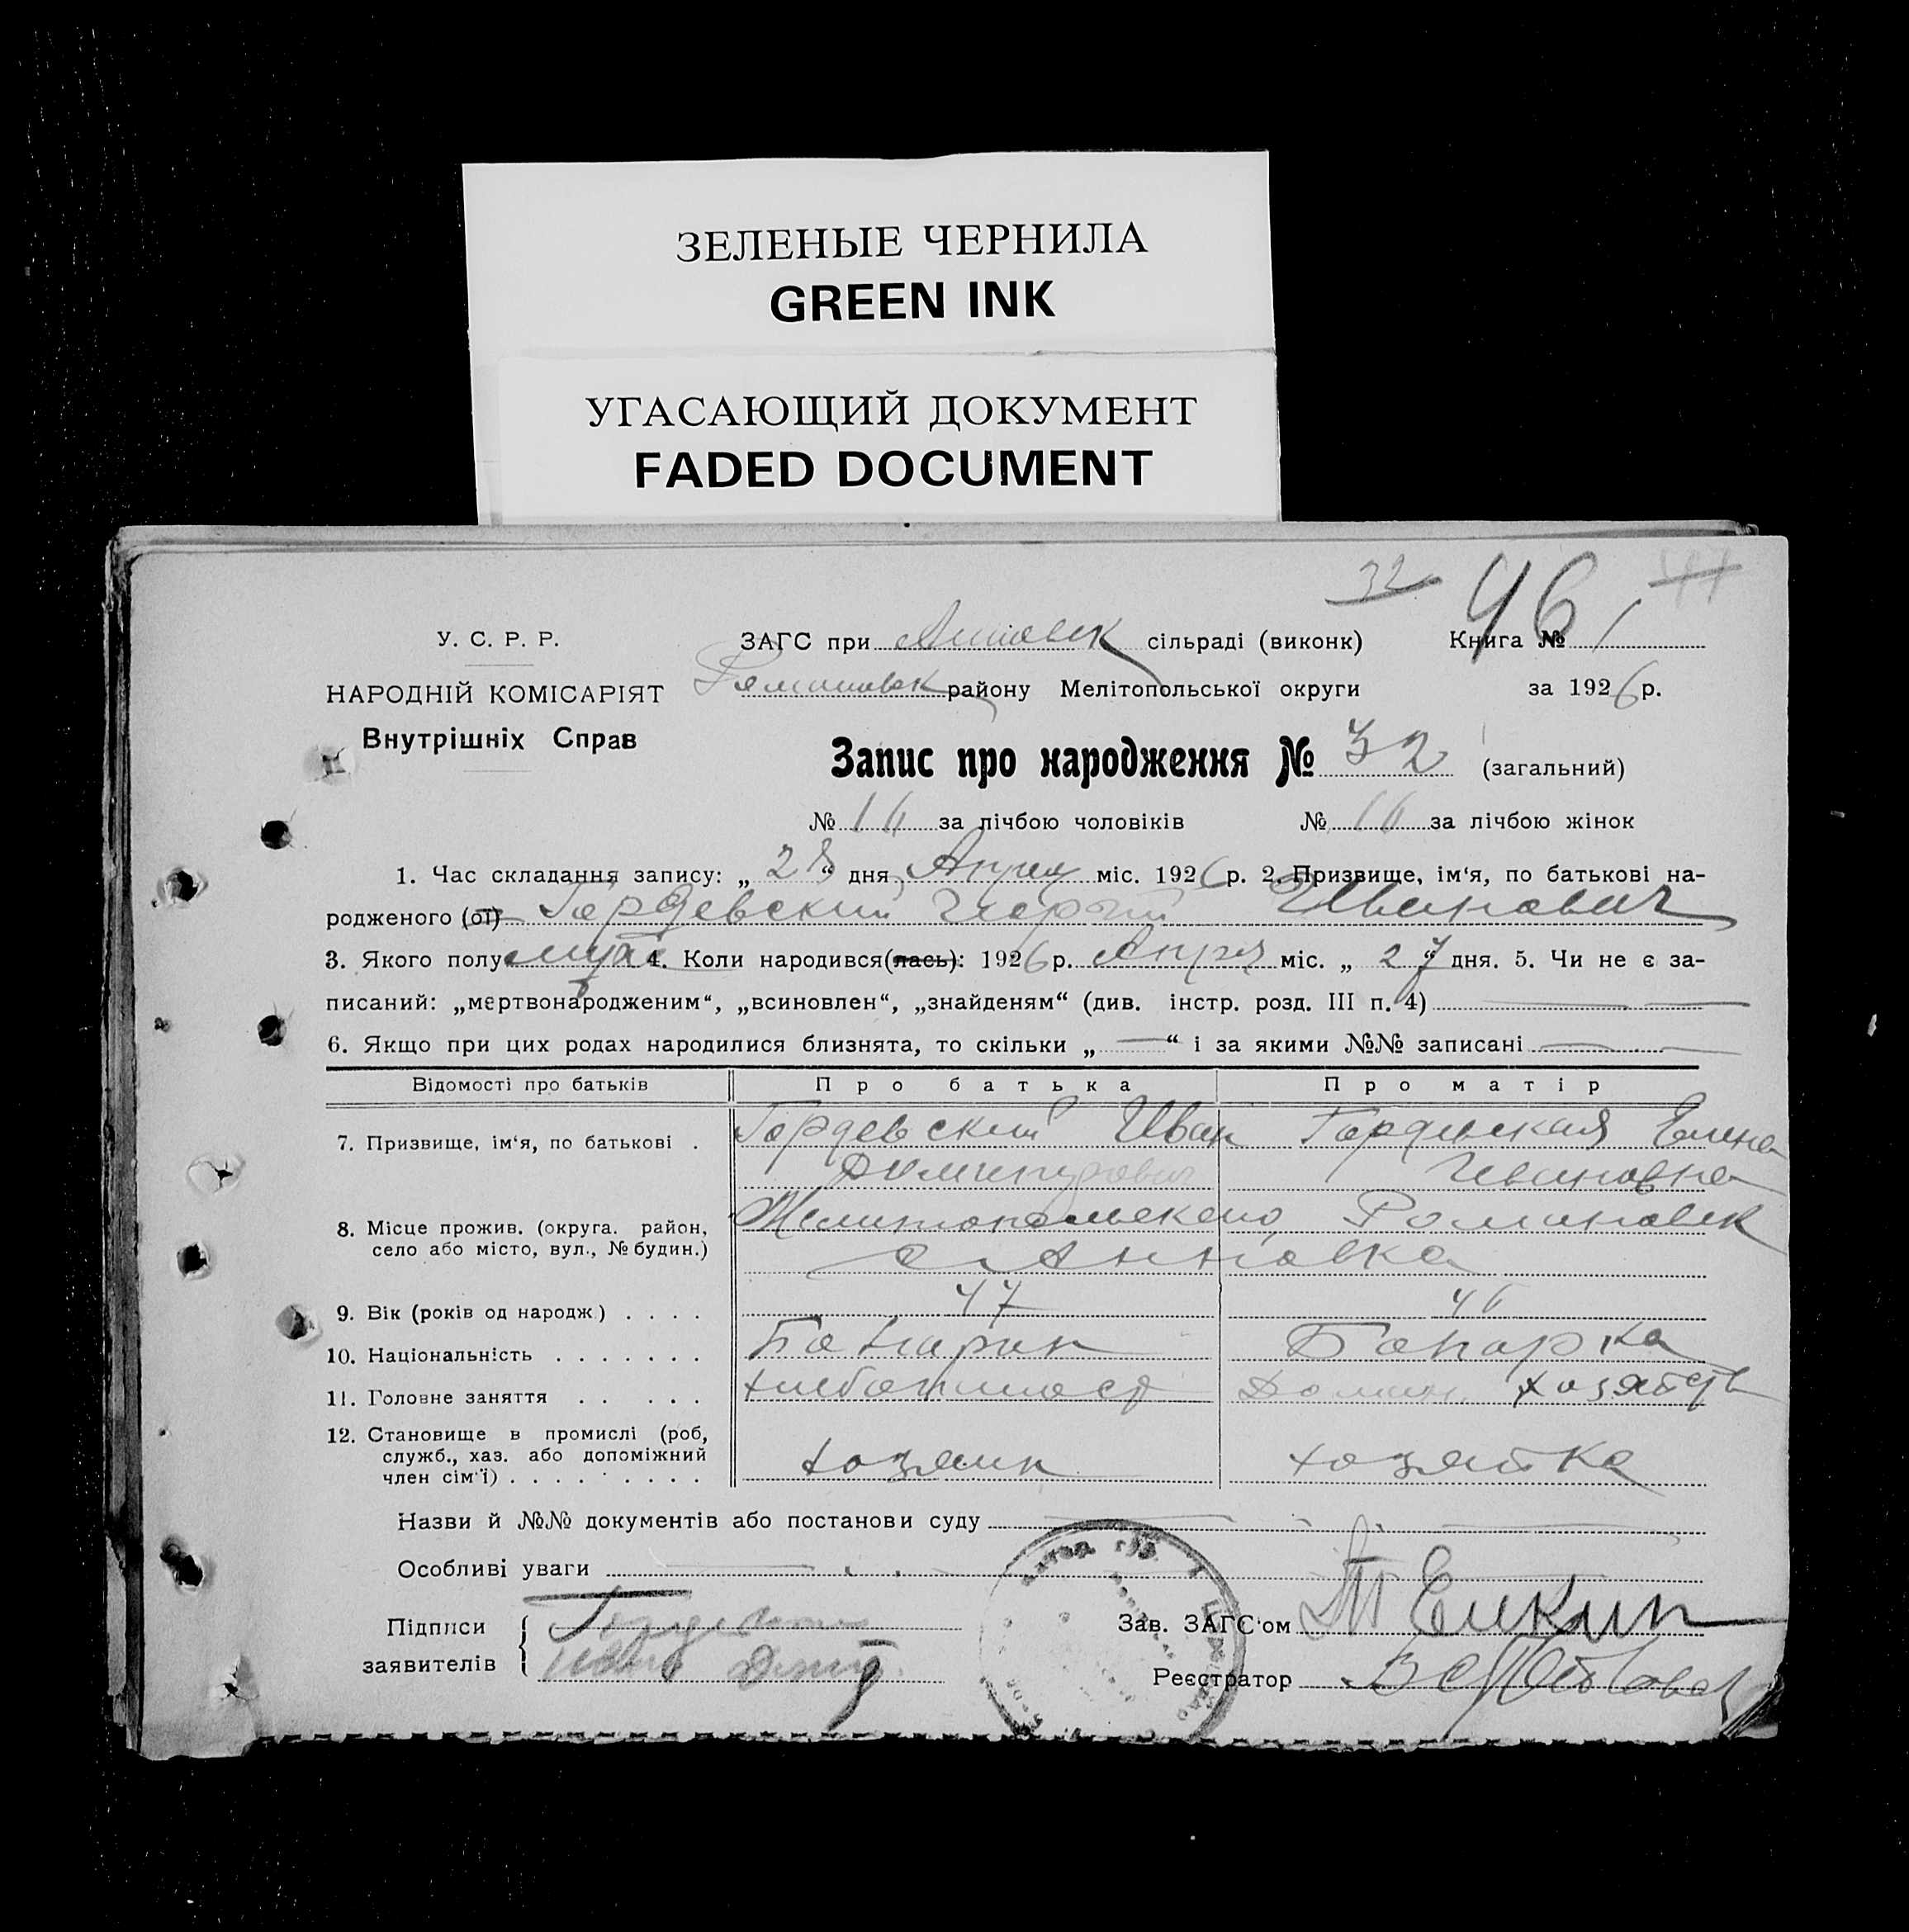 ЗЕЛЕНЫЕ ЧЕРНИЛА
GREEN INK
УГАСАЮЩИЙ ДОКУМЕНТ
FADED DOCUMENT
32 46
У. С. Р. Р.
НАРОДНІЙ КОМІСАРІЯТ
Внутрішніх Справ
ЗАГС при сільраді (виконк) Книга №
району Мелітопольської округи за 1926 р.
Запис про народження № 32 (загальний)
№ 16 за лічбою чоловіків № 16 за лічбою жінок
1. Час складання запису: „ 28 “ дня міс. 1926 р. 2. Призвище, ім‘я, по батькові на-
родженого (ої) Гардевский Георгий Иванович
3. Якого полу муж 4. Коли народився(лась): 1926 р. Апрел міс. „ 27 “ дня. 5. Чи не є за-
писаний: „мертвонародженим“, „всиновлен“, „знайденям“ (див. інстр. розд. III п. 4)
6. Якщо при цих родах народилися близнята, то скільки „ — “ і за якими №№ записані
Відомості про батьків Про батька Про матір
7. Призвище, ім‘я, по батькові . Гардевский Иван Гардевская Елена
Ивановна
8. Місце прожив. (округа. район, село або місто, вул., № будин.) Мелитопольского Романовск
с Анновка
9. Вік (років од народж) . . . . 47
10. Національність . . . . . . . Болгарин Болгарка
11. Головне заняття . . . . . Домашн. хозяйств
12. Становище в промислі (роб, служб., хаз. або допоміжний член сім‘ї) . . . . . . . . . хозяин хозяйка
Назви й №№ документів або постанови суду
Особливі уваги
Підписи заявителів
Зав. ЗАГС‘ом
Реєстратор